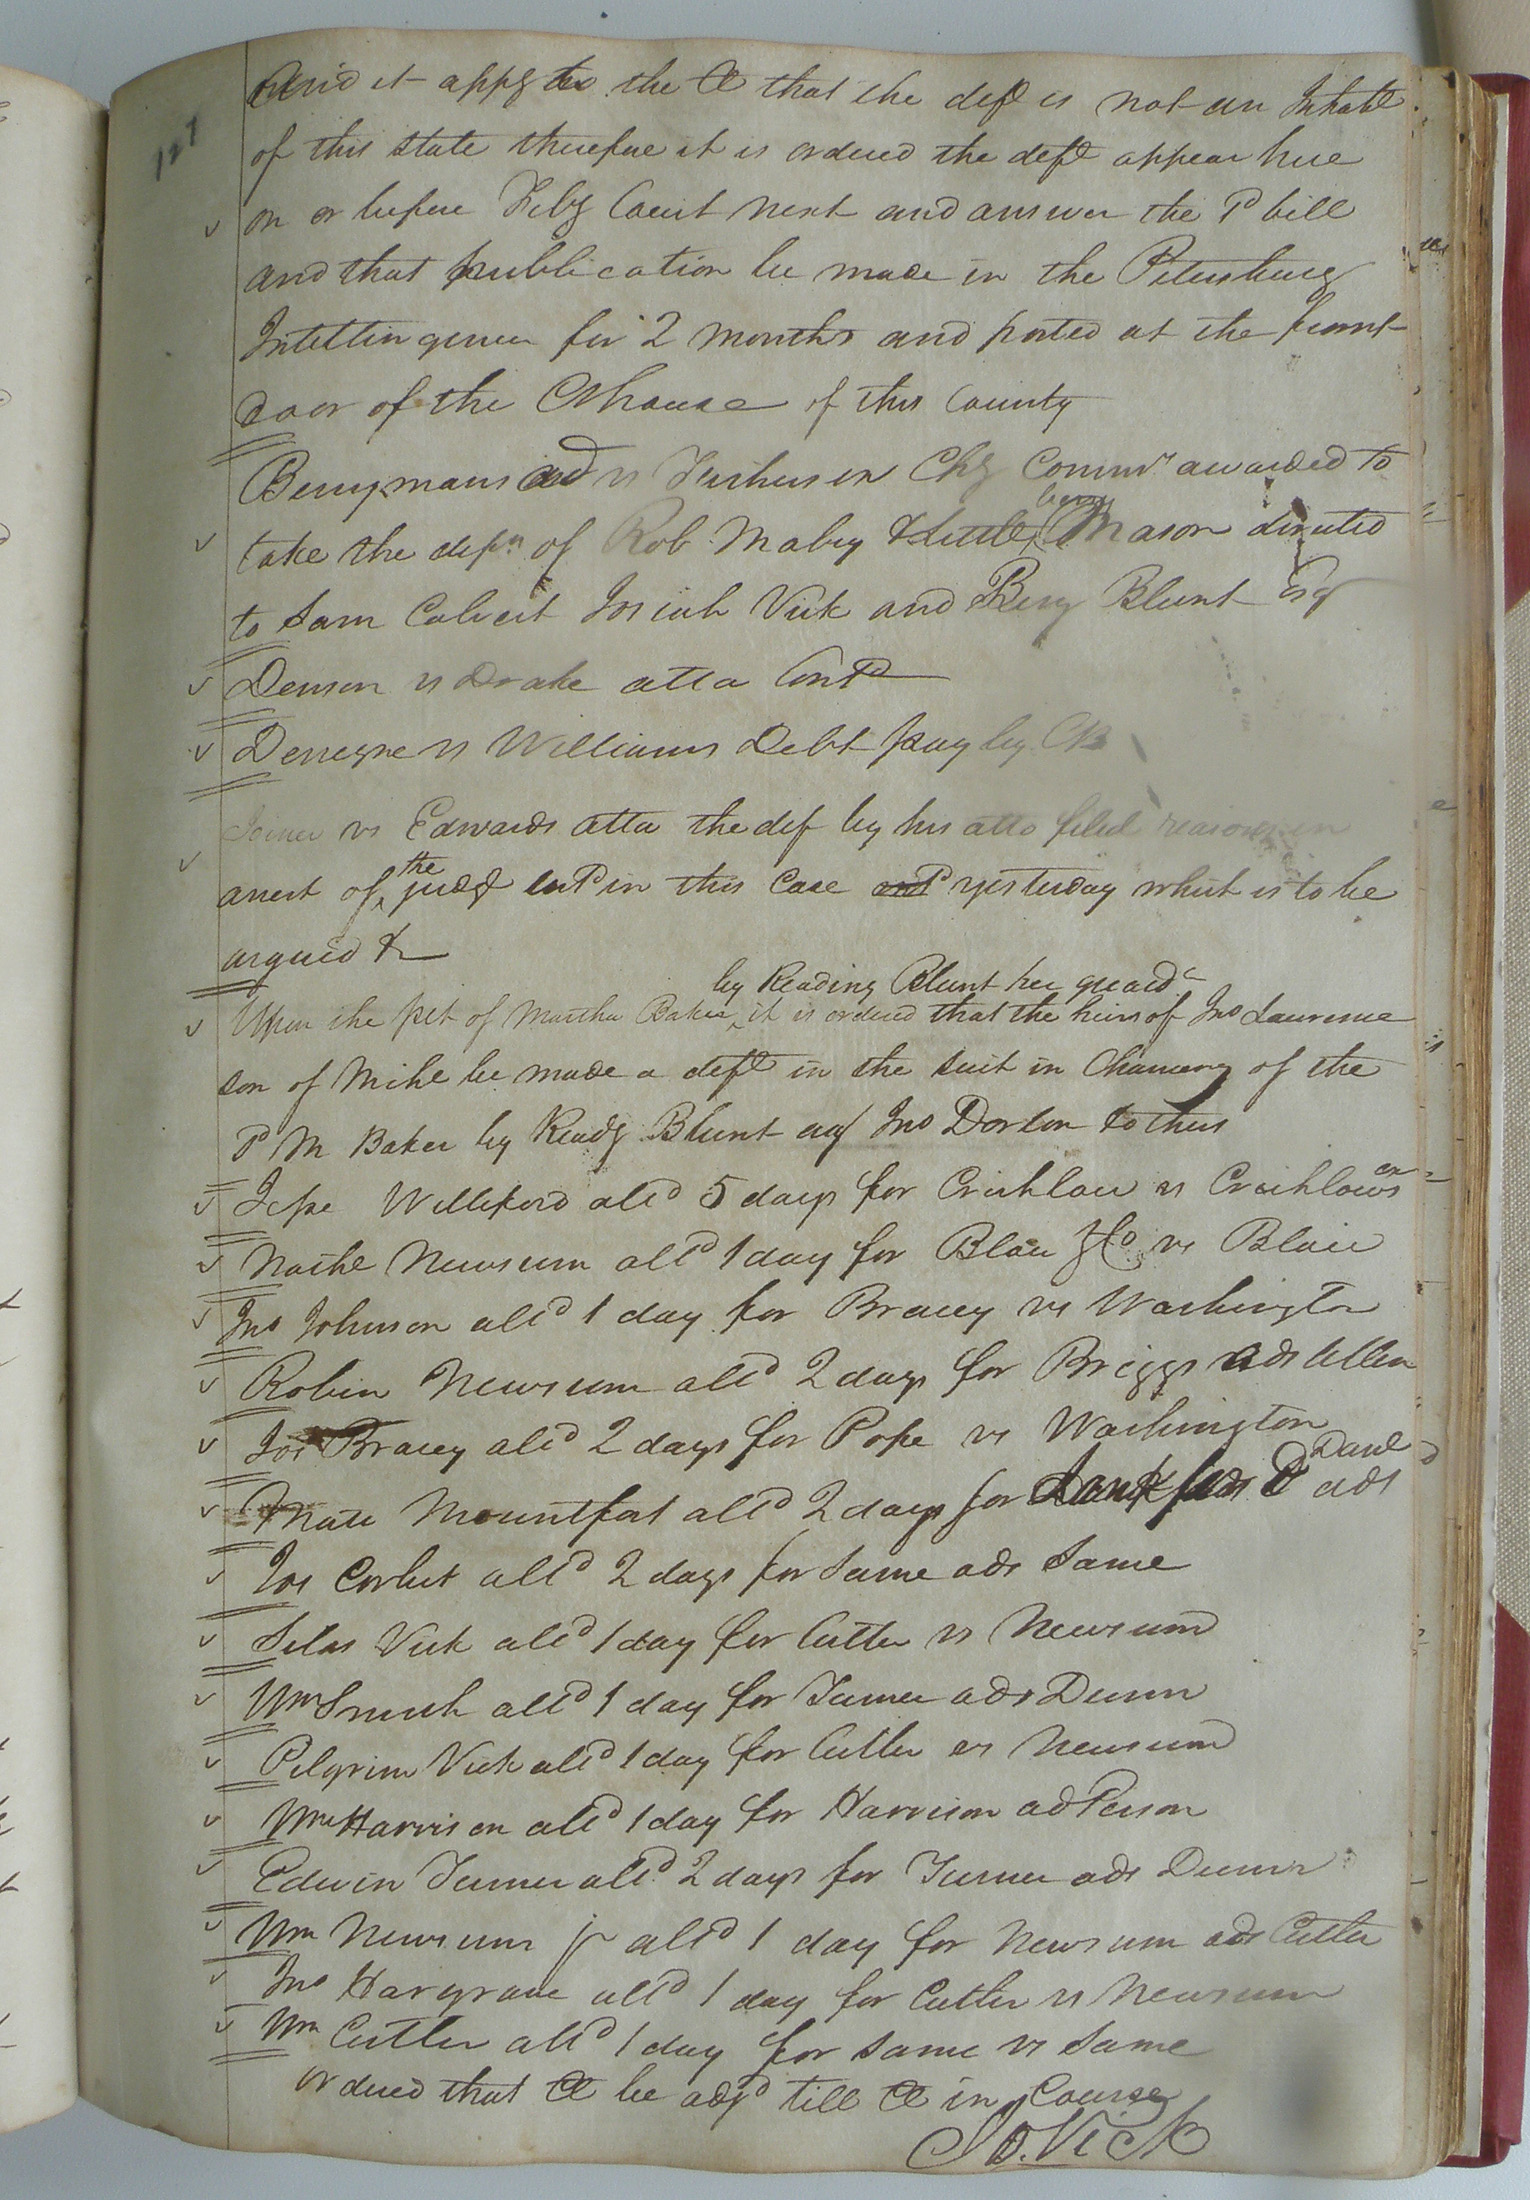 127
And it appg to the Ct that the deft is not an Inhabt
of this state therefore it is ordered the deft appear here
on or before Feby Court next and answer the sd bill
and that publication be made in the Petersburg
Intelligencer for 2 months and posted at the front
door of the Cthouse of this County
Berrymans ad vs Chy Commn awarded to
take the depn of Rob Mabry & Little berry Mason directed
to Sam Calvert Josiah Vick and Benj Blunt Esq
Denson vs Drake atta Contd
Denegre vs Williams Debt pay by
Joiner vs Edwards atta the def by his atto filed reasons in
arrest of the judgt entd in this Case yesterday which is to be
argued &
by Reading Blunt her guardn
Upon the pet of Martha Baker it is ordered that the heirs of Jno Laurence
son of Mike be made a deft in the suit in Chancery of the
sd M Baker by Readg Blunt agt Jno Dorton & others
Jesse Williford alld 5 days for Crichlow vs Crichlows ex
Nathl Newsum alld 1 day for Blow & Co vs Blow
Jno Johnson alld 1 day for Bracey vs Washington
Robin Newsum alld 2 days for Briggs ads Allen
Jos Bracey alld 2 days for Pope vs Washington
Mate Mountfort alld 2 days for Lankford ads Danl
Jos Corbit alld 2 days for Same ads Same
Silas Vick alld 1 day for Cutler vs Newsum
Wm Smith alld 1 day for Turner ads Dunn
Pilgrim Vick alld 1 day for Cutler vs Newsum
Wm Harrison alld 1 day for Harrison ad Person
Edwin Turner alld 2 days for Turner ads Dunn
Wm Newsum jr alld 1 day for Newsum ads Cutler
Jno Hargrave alld 1 day for Cutler vs Newsum
Wm Cutler alld 1 day for Same vs Same
Ordered that Ct be adjd till Ct in Course
Jo. Vick